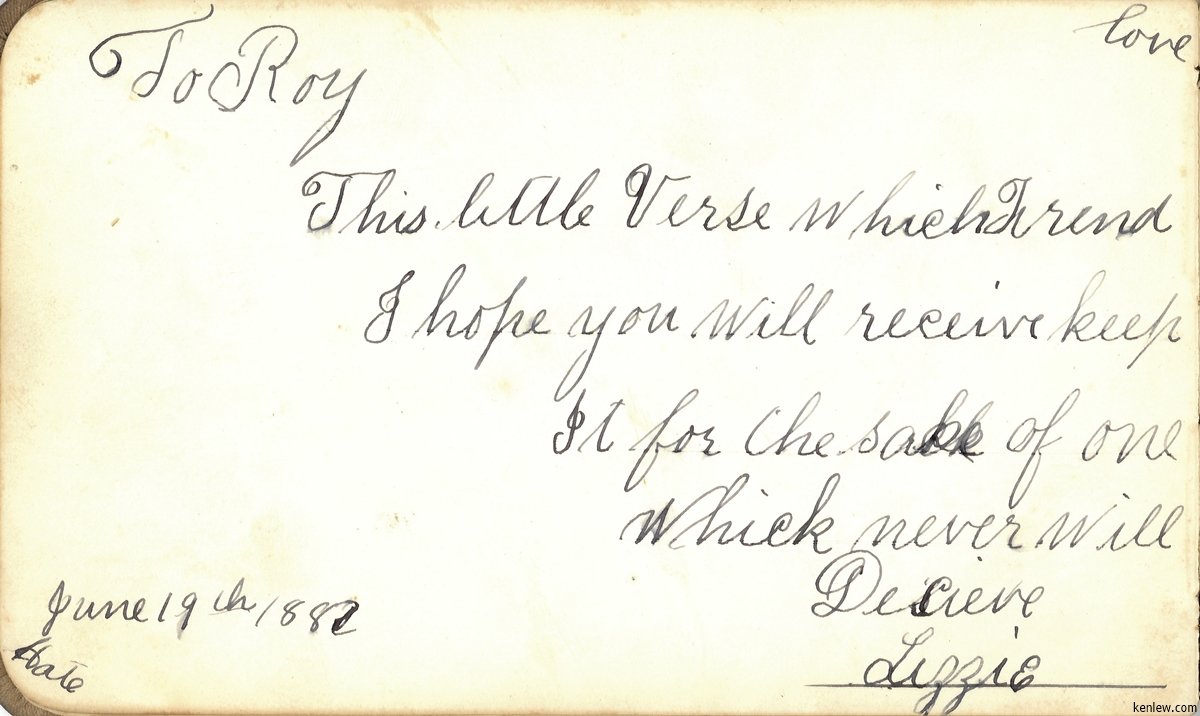 love
To Roy
This little Verse which Frend
I hope you will receive keep
It for the sake of one
Whick never will
Decieve
Lizzie
June 19th 1882
Hate
kenlew.com